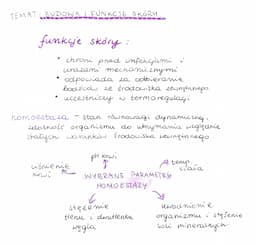 TEMAT: BUDOWA I FUNKCJE SKÓRY
funkcje skóry:
• chroni przed infekcjami i
urazami mechanicznymi
• odpowiada za odbieranie
bodźców ze środowiska zewnętrznego
• uczestniczy w termoregulacji
homeostaza - stan równowagi dynamicznej,
zdolność organizmu do utrzymania względnie
stałych warunków środowiska wewnętrznego
pH krwi
ciśnienie
krwi
temp.
ciała
WYBRANE PARAMETRY
HOMEOSTAZY
stężenie
tlenu i dwutlenku
węgla
nawodnienie
organizmu i stężenie
soli mineralnych